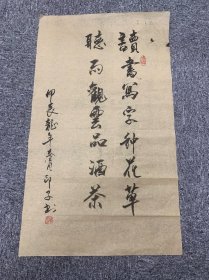 讀書寫字種花草
聽雨觀雲品酒茶
甲辰龍年